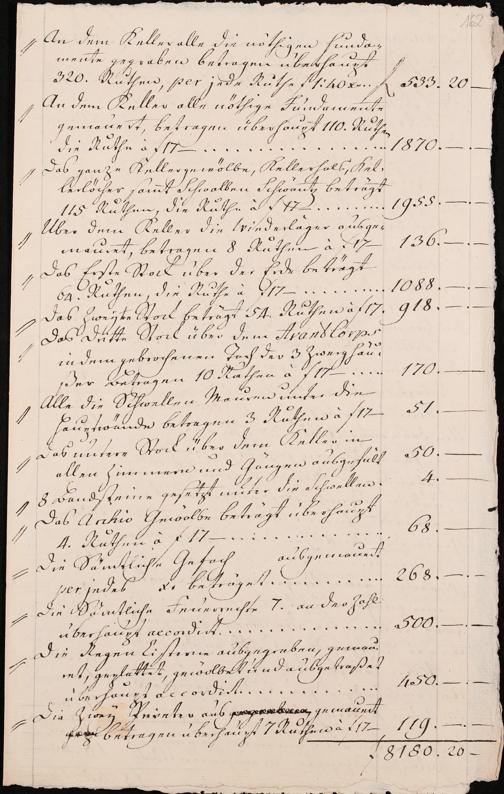 162
〃 An dem Keller alle die nöthigen Funda-
mente gegraben betragen überhaupt
320. Ruthen, per jede Ruthe f 1:40 xr f 533. 20 —
〃 An dem Keller alle nöthige Fundamente
gemauert, betragen überhaupt 110. Ruthen
die Ruthe à f 17 — 1870. — —
〃 Das ganze Kellergewölbe, Kellerhals, Kel-
lerlöcher samt Schwalben Schwäntz beträgt
115 Ruthen, die Ruthe à f 17 1955. — —
〃 Über dem Keller die Wiederläger ausge-
mauret, betragen 8 Ruthen à f 17 — 136. — —
〃 Das Erste Stock über der Erde beträgt
64. Ruthen, die Ruthe à f 17 — 1088 — —
〃 Das Zweyte Stock beträgt 54. Ruthen à f 17. 918. — —
〃 Das Dritte Stock über dem Avant Corps
in dem gebrochenen Dach der 3 Zwerghäu-
ßer betragen 10. Ruthen à f 17 — 170. — —
〃 Alle die Schwellen Mauren unter die
Hauptwände betragen 3 Ruthen à f 17 — 51. — —
〃 Das untere Stock über dem Keller in
allen Zimmern und Gängen ausgefüllt 50. — —
〃 8 Sandsteine gesetzt unter die Schwellen. 4. — —
〃 Das Archiv Gewölbe beträgt überhaupt
4. Ruthen à f 17 — 68. — —
〃 Die Sämtliche Gefach ausgemauert
per jedes xr betraget 268. — —
〃 Die Sämtliche 7. an der Zahl
überhaupt accordirt 500. — —
〃 Die Regen Cisterne ausgegraben, gemau-
ret, geplattet, gewölbet und
überhaupt accordirt 450. — —
〃 Die Zwey Priveter aus gemauert
betragen überhaupt 7 Ruthen à f 17 — 119. — —
f 8180. 20 —